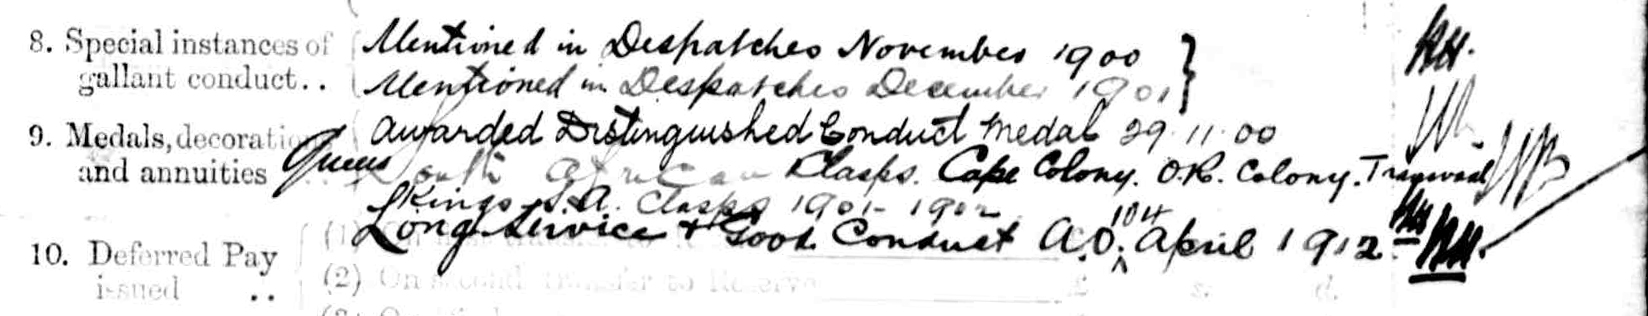 8. Special instances of gallant conduct..
Mentioned in Despatches November 1900
Mentioned in Despatches December 1901
9. Medals, decorations and annuities
Awarded Distinguished Conduct Medal 29 11 00
Queens South African Clasps. Cape Colony. O.R. Colony. Transvaal
Kings S.A. Clasps 1901 - 1902
Long Service & Good Conduct A.O. 104 April 1912
10. Deferred Pay issued ..
(2) On second transfer to Reserve
£ s. d.